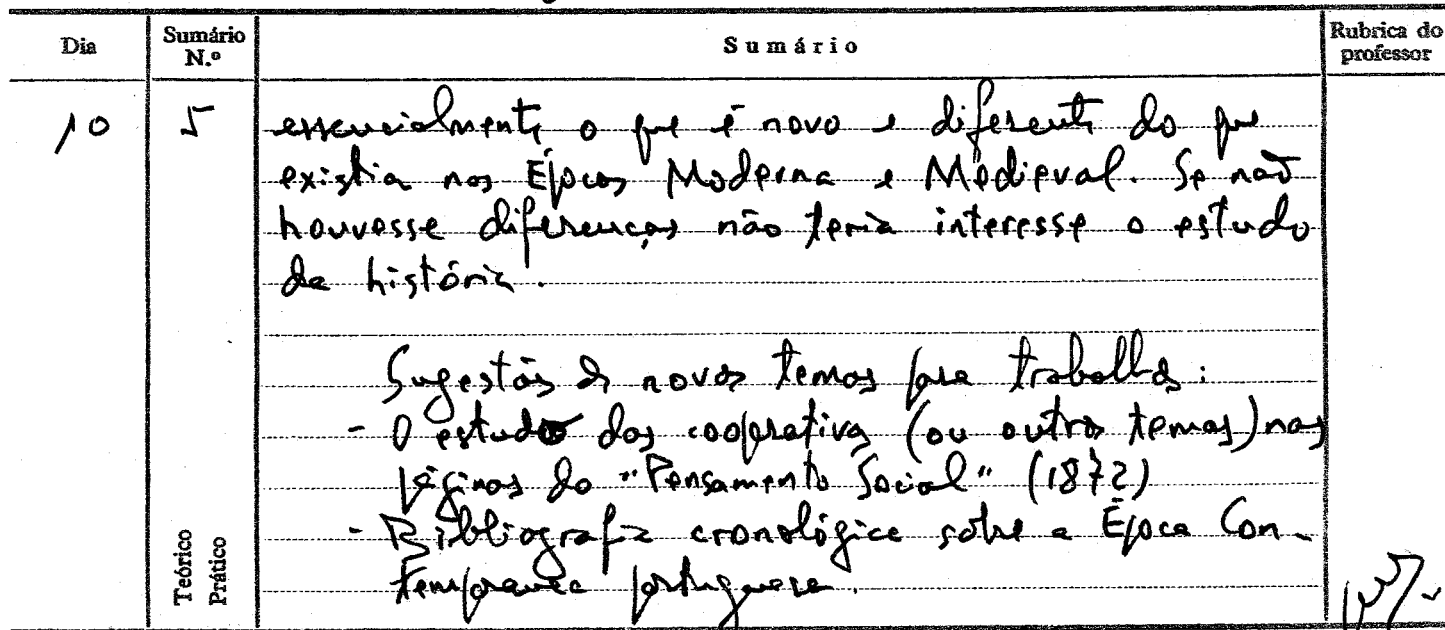 Dia
Sumário N.º
Sumário
Rubrica do professor
10
5
essencialmente o que é novo e diferente do que
existia nas Épocas Moderna e Medieval. Se não
houvesse diferenças não teria interesse o estudo
da história.
Sugestões de novos temas para trabalhos:
- O estudo das cooperativas (ou outros temas) nas
páginas do "Pensamento Social" (1872)
- Bibliografia cronológica sobre a Época Con-
temporanea portuguesa.
Teórico
Prático